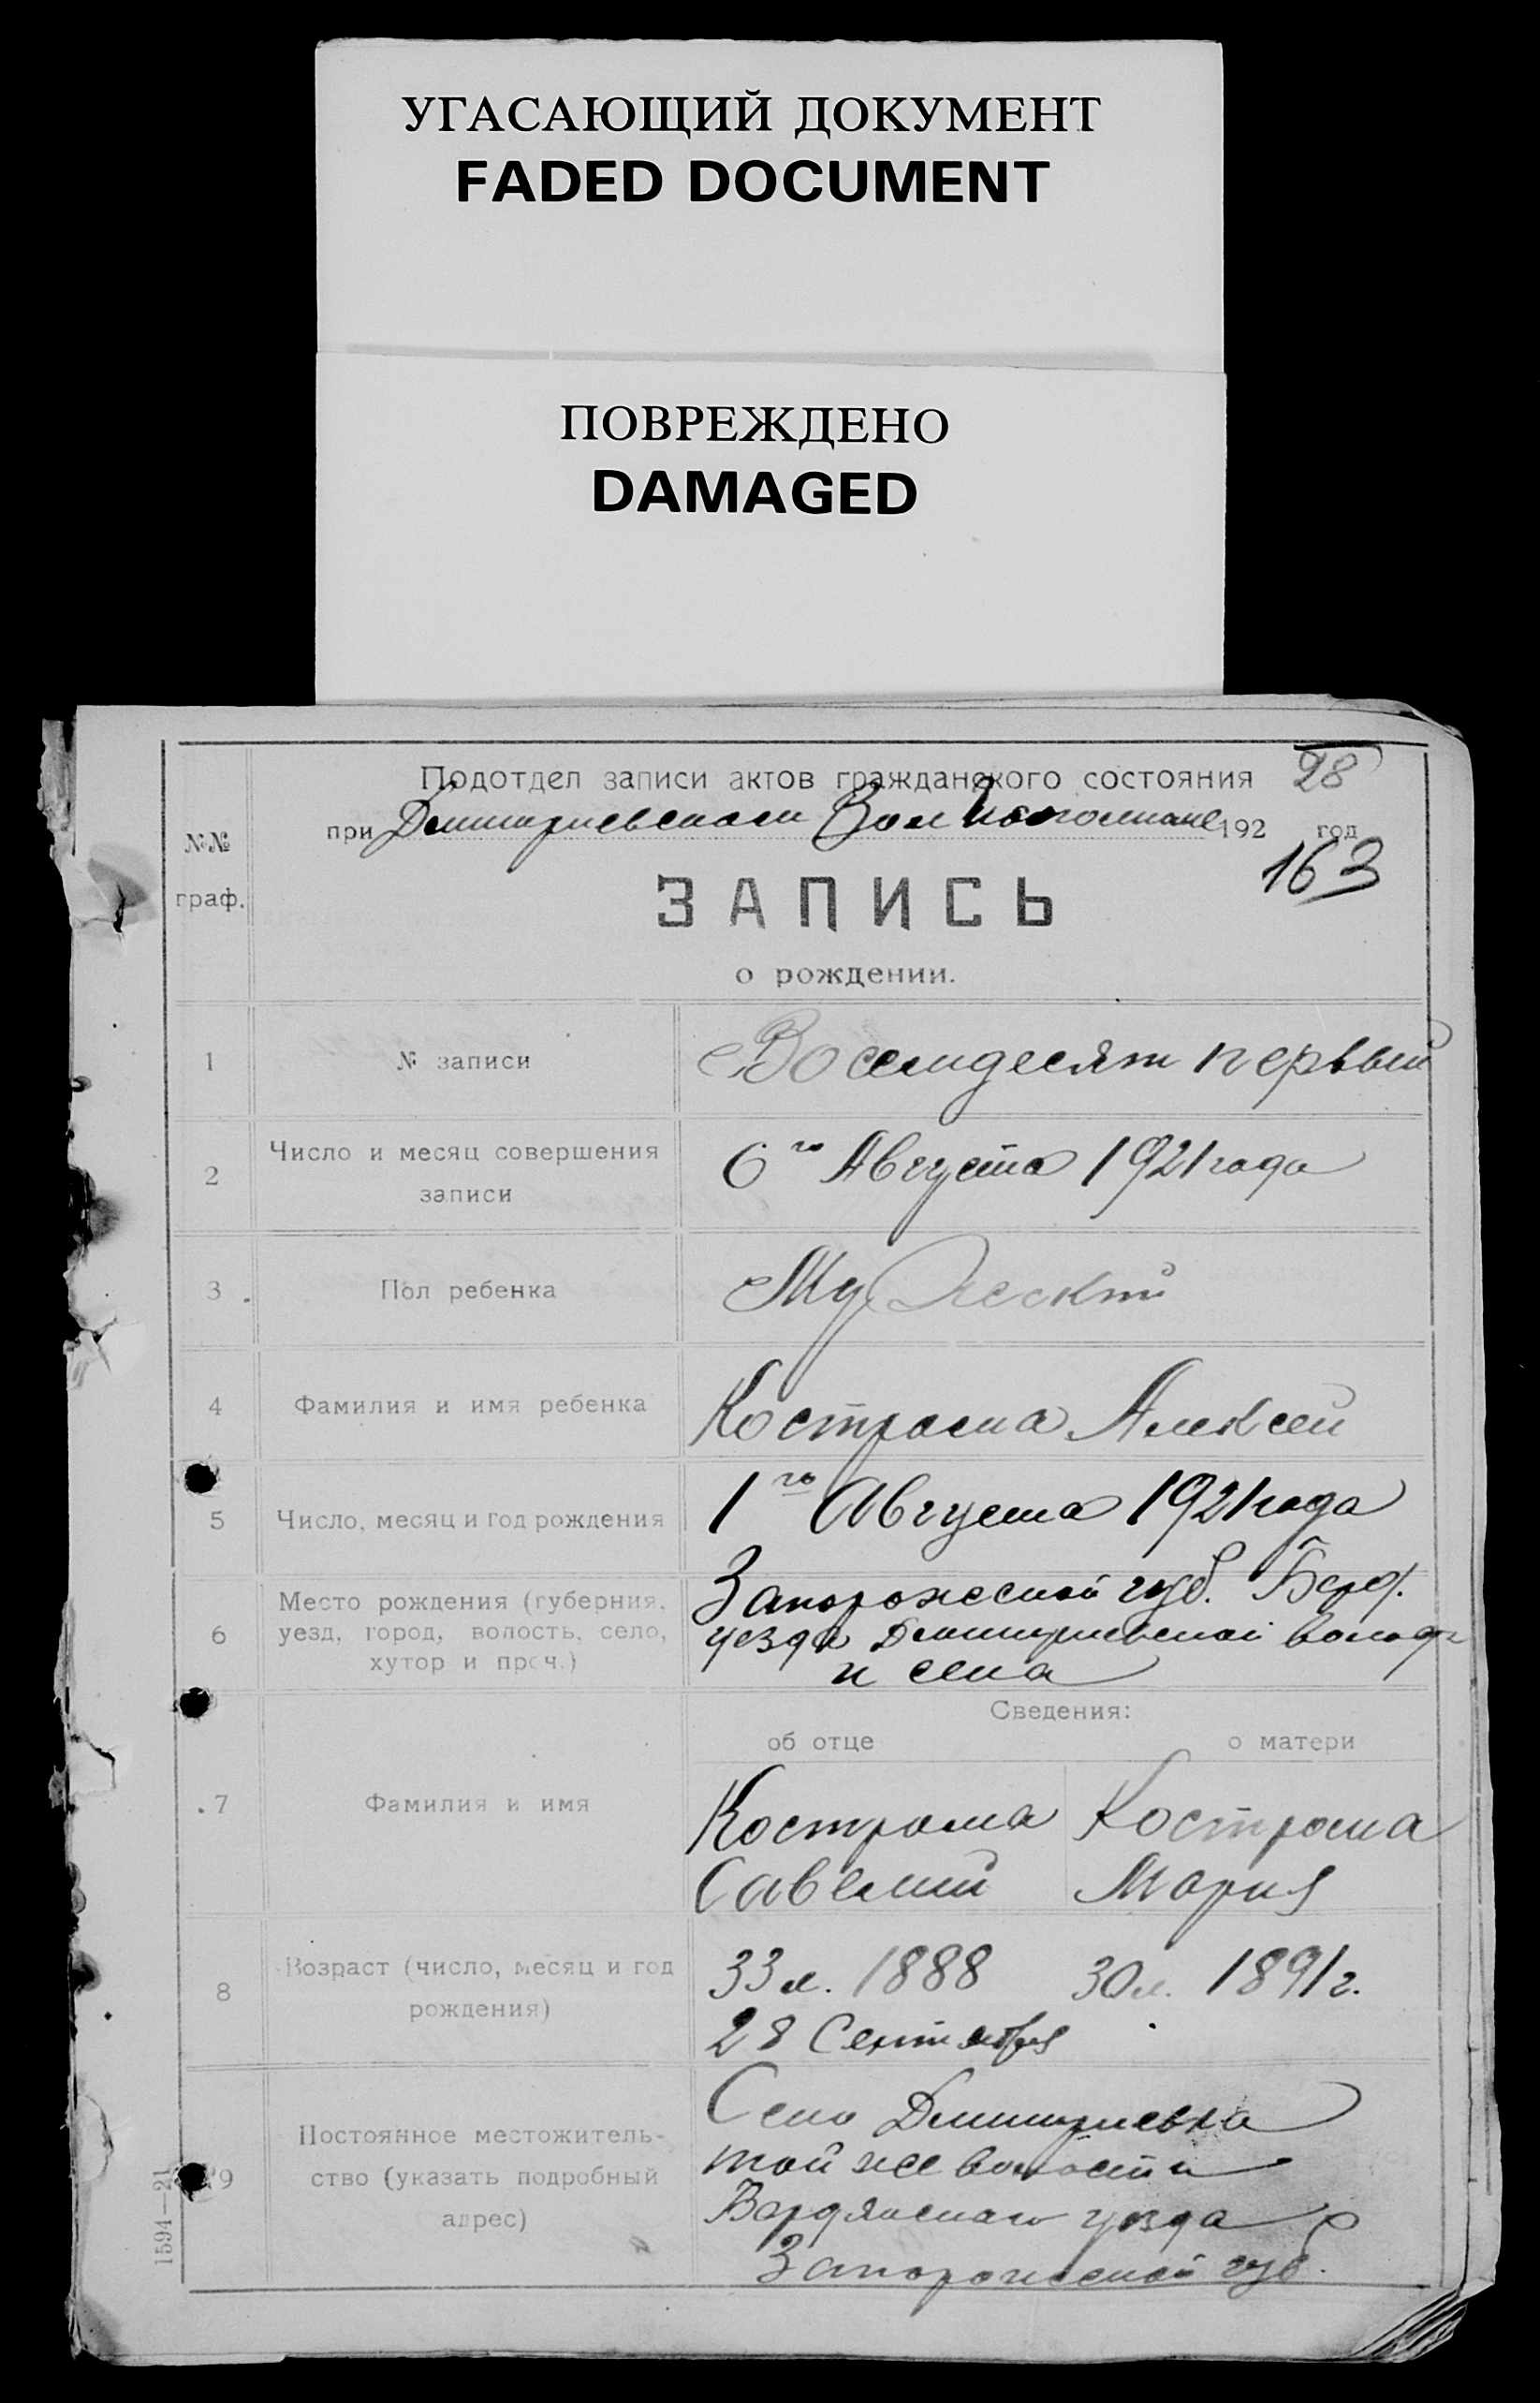 УГАСАЮЩИЙ ДОКУМЕНТ
FADED DOCUMENT
ПОВРЕЖДЕНО
DAMAGED
28
Подотдел записи актов гражданского состояния
при Дмитриевском Вол Исполкоме 192 год
163
№№
граф.
ЗАПИСЬ
о рождении.
1 № записи Восемдесят первый
2 Число и месяц совершения записи 6го Августа 1921 года
3 Пол ребенка Мужескій
4 Фамилия и имя ребенка Кострома Алексей
5 Число, месяц и год рождения 1го Августа 1921 года
6 Место рождения (губерния, Запорожской губ. Берд.
уезд, город, волость, село, уезда Дмитриевской волости
хутор и проч.) и села
Сведения:
об отце о матери
7 Фамилия и имя Кострома Кострома
Савелий Мария
8 Возраст (число, месяц и год 33 л. 1888 30 л. 1891 г.
рождения) 28 Сентября
Село Дмитриевка
9 Постоянное местожитель- той же волости
ство (указать подробный Бердянскаго уезда
адрес) Запорожской губ.
1594—21